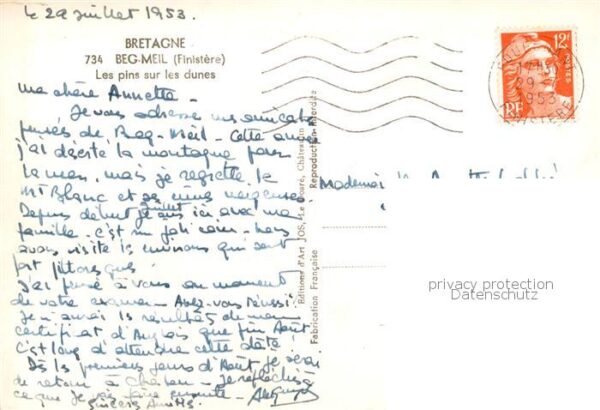 le 29 juillet 1953.
BRETAGNE
734 BEG-MEIL (Finistère)
Les pins sur les dunes
Ma chère Annette -
Je vous adresse mes amicales
pensées de Beg-Meil - Cette année
j'ai déserté la montagne pour
la mer, mais je regrette le
Mt Blanc et ses neigeuses
Depuis début juillet je suis ici avec ma
famille. C'est un joli coin. Nous
avons visité les environs qui sont
fort pittoresques
J'ai pensé à vous au moment
de votre examen - Avez-vous réussi?
Je n'aurai les résultats de mon
certificat d'Anglais que fin Août
C'est long d'attendre cette date!
Dès les premiers jours d'Août je serai
de retour à - Je réfléchis à
ce que je vais faire ensuite -
Sincères Amitiés
Editions d'Art JOS, Le Doaré, Châteaulin
Reproduction Interdite
Fabrication Française
12f
POSTES
RF
1953
FINISTERE
Mademoi
privacy protection
Datenschutz